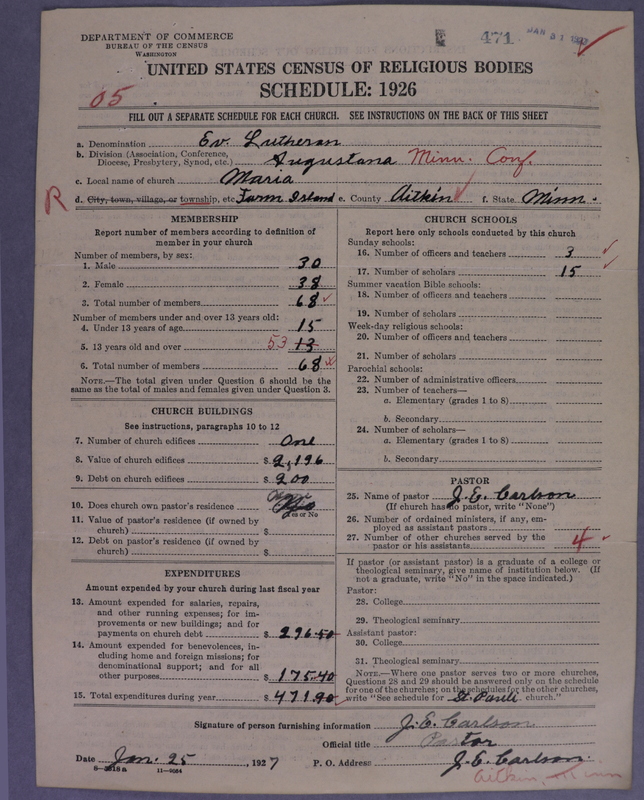 DEPARTMENT OF COMMERCE
BUREAU OF THE CENSUS
WASHINGTON
471
JAN 31 1927
UNITED STATES CENSUS OF RELIGIOUS BODIES
SCHEDULE: 1926
05
FILL OUT A SEPARATE SCHEDULE FOR EACH CHURCH. SEE INSTRUCTIONS ON THE BACK OF THIS SHEET
a. Denomination Ev. Lutheran
b. Division (Association, Conference, Diocese, Presbytery, Synod, etc.) Augustana Minn. Conf.
c. Local name of church Maria
R d. City, town, village, or township, etc. Farm Island e. County Aitkin f. State Minn.
MEMBERSHIP
Report number of members according to definition of
member in your church
Number of members, by sex:
1. Male 30
2. Female 38
3. Total number of members 68
Number of members under and over 13 years old:
4. Under 13 years of age 15
5. 13 years old and over 53 13
6. Total number of members 68
NOTE.—The total given under Question 6 should be the
same as the total of males and females given under Question 3.
CHURCH BUILDINGS
See instructions, paragraphs 10 to 12
7. Number of church edifices One
8. Value of church edifices $2,196
9. Debt on church edifices $200
10. Does church own pastor's residence?
Yes or No
11. Value of pastor's residence (if owned by
church) $
12. Debt on pastor's residence (if owned by
church) $
EXPENDITURES
Amount expended by your church during last fiscal year
13. Amount expended for salaries, repairs,
and other running expenses; for im-
provements or new buildings; and for
payments on church debt $296.50
14. Amount expended for benevolences, in-
cluding home and foreign missions; for
denominational support; and for all
other purposes $175.40
15. Total expenditures during year $471.90
CHURCH SCHOOLS
Report here only schools conducted by this church
Sunday schools:
16. Number of officers and teachers 3
17. Number of scholars 15
Summer vacation Bible schools:
18. Number of officers and teachers
19. Number of scholars
Week-day religious schools:
20. Number of officers and teachers
21. Number of scholars
Parochial schools:
22. Number of administrative officers
23. Number of teachers—
a. Elementary (grades 1 to 8)
b. Secondary
24. Number of scholars—
a. Elementary (grades 1 to 8)
b. Secondary
PASTOR
25. Name of pastor J. E. Carlson
(If church has no pastor, write "None")
26. Number of ordained ministers, if any, em-
ployed as assistant pastors
27. Number of other churches served by the
pastor or his assistants 4
If pastor (or assistant pastor) is a graduate of a college or
theological seminary, give name of institution below. (If
not a graduate, write "No" in the space indicated.)
Pastor:
28. College
29. Theological seminary
Assistant pastor:
30. College
31. Theological seminary
NOTE.—Where one pastor serves two or more churches,
Questions 28 and 29 should be answered only on the schedule
for one of the churches; on the schedules for the other churches,
write "See schedule for St. Pauli church."
Signature of person furnishing information J. E. Carlson
Official title Pastor
Date Jan. 25, 1927 P. O. Address J. E. Carlson.
Aitkin, Minn
11—9664